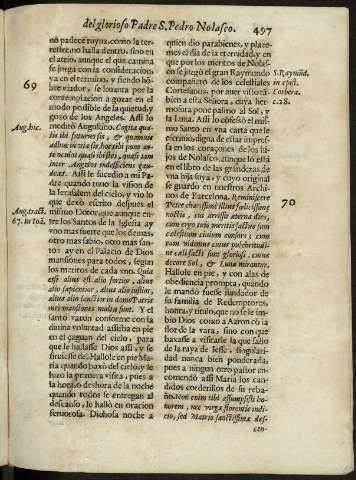 del glorioso Padre S. Pedro Nolasco. 497
no padece ruyna, como la ter-
restre, no halla dentro, sino en
el atrio, aunque el que camina
se juzga con la consideracion
ya en el termino, y siendo hõ-
bre viador, se leuanta por la
contemplacion a gozar en el
modo possible de la quietud, y
gozo de los Angeles. Assi lo
meditò Augustino. Cogita qua-
adhuc in via sis, hoc tibi pone an-
te oculos quasi iã
inter Angelos indeficiens gau-
deas. Assi le sucediò a mi Pa-
dre quando tuuo la vision de
la Ierusalen del cielo, y viò lo
que dexò escrito despues el
mismo Doctor, que aunque en-
tre los Santos de la Iglesia ay
vno mas fuerte que los demas,
otro mas sabio, otro mas san-
to: ay en el Palacio de Dios
mansiones para todos, segun
los meritos de cada vno. Quia
etsi alius est alio fortior, alius
alio sapientior, alius alio iustior,
alius alio sanctior in domo Patris
mei mansiones multæ sunt. Y el
santo varon conforme con la
diuina voluntad assistia en pie
en el çaguan del cielo, para
que le hallasse Dios assi, y se
siruiesse del. Hallole en pie Ma-
ria quando baxò del cielo, y le
hizo la primera visita, pues a
la hora, o deshora de la noche
quando todos se entregan al
descanso, le hallò en oracion
feruorosa. Dichosa noche a
69
Aug. hic.
Aug. tract.
67. in Ioã.
quien dio parabienes, y plaze-
mes el dia de la eternidad, y en
que por los meritos de Nolas-
co se juzgò el gran Raymundo
compañero de los celestiales
Cortesanos, por auer visto tã-
bien a esta Señora, cuya her-
mosura pone pasmo al Sol, y
la Luna. Assi lo confessò el mis-
mo Santo en vna carta que le
escriuiò, digna de estar impres-
sa en los coraçones de los hi-
jos de Nolasco, aunque lo està
en el libro de las grandezas de
vna hija suya, y cuyo original
se guarda en nuestros Archi-
uos de Barcelona. Reminiscere
Petre charissime illius felicissimæ
noctis, cui inuisisse æterna dies,
cum ergo tuis meritis factus sum
cælestium ciuium consors, cum
eam vidimus cuius pulchritudi-
ne cæli facti sunt gloriosi, cuius
decore Sol, & Luna mirantur.
Hallole en pie, y con alas de
obediencia prompta, quando
le mandò fuesse fundador de
su familia de Redemptores,
honra, y titulo, que no se le im-
bio Dios como a Aaron cõ la
flor de la vara, sino con que
baxasse a visitarle la que saliò
de la rayz de Iesse, singulari-
dad nunca bien ponderada,
pues a ningun otro pastor en-
comendò assi Maria los can-
didos corderillos de su reba-
ño. Non enim tibi assumpsisti ho-
norem, nec virgæ florentis indi-
cio, sed Matris sanctissimæ des-
cen-
S. Raymũd.
in epist.
Corbera.
c. 28.
70